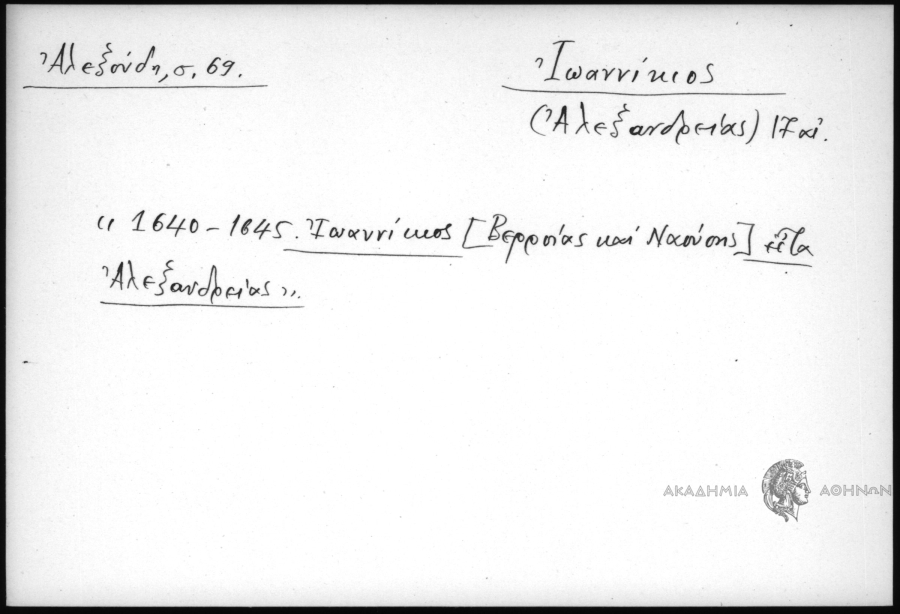 Ἀλεξούδη, σ. 69.
Ἰωαννίκιος
(Ἀλεξανδρείας) 17 αἰ.
« 1640 – 1645. Ἰωαννίκιος [Βερροίας καί Ναούσης] εἶτα
Ἀλεξανδρείας ».
ΑΚΑΔΗΜΙΑ ΑΘΗΝΩΝ